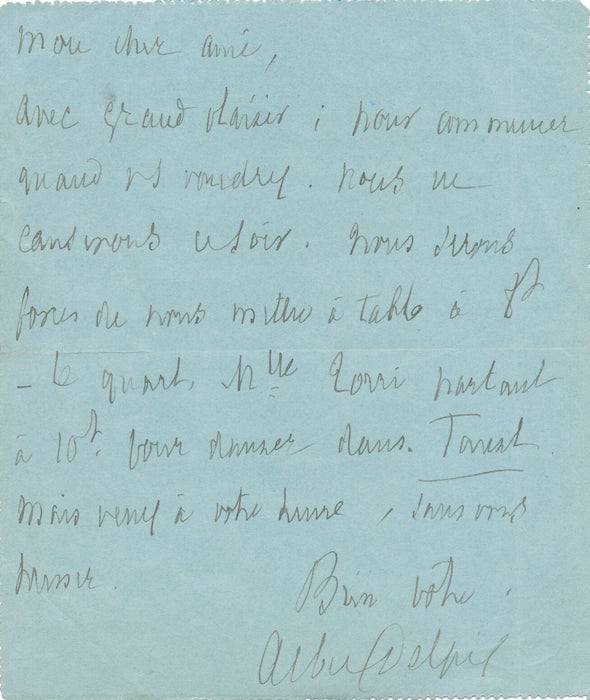 Mon cher ami,
avec grand plaisir ; pour commencer
quand vs voudrez. Nous en
causerons ce soir. Nous serons
forcés de nous mettre à table à 8h
– le quart, Mlle Zorri partant
à 10h. pour danser dans
Mais venez à votre heure, sans vous
presser.
Bien votre.
Albert Delpit